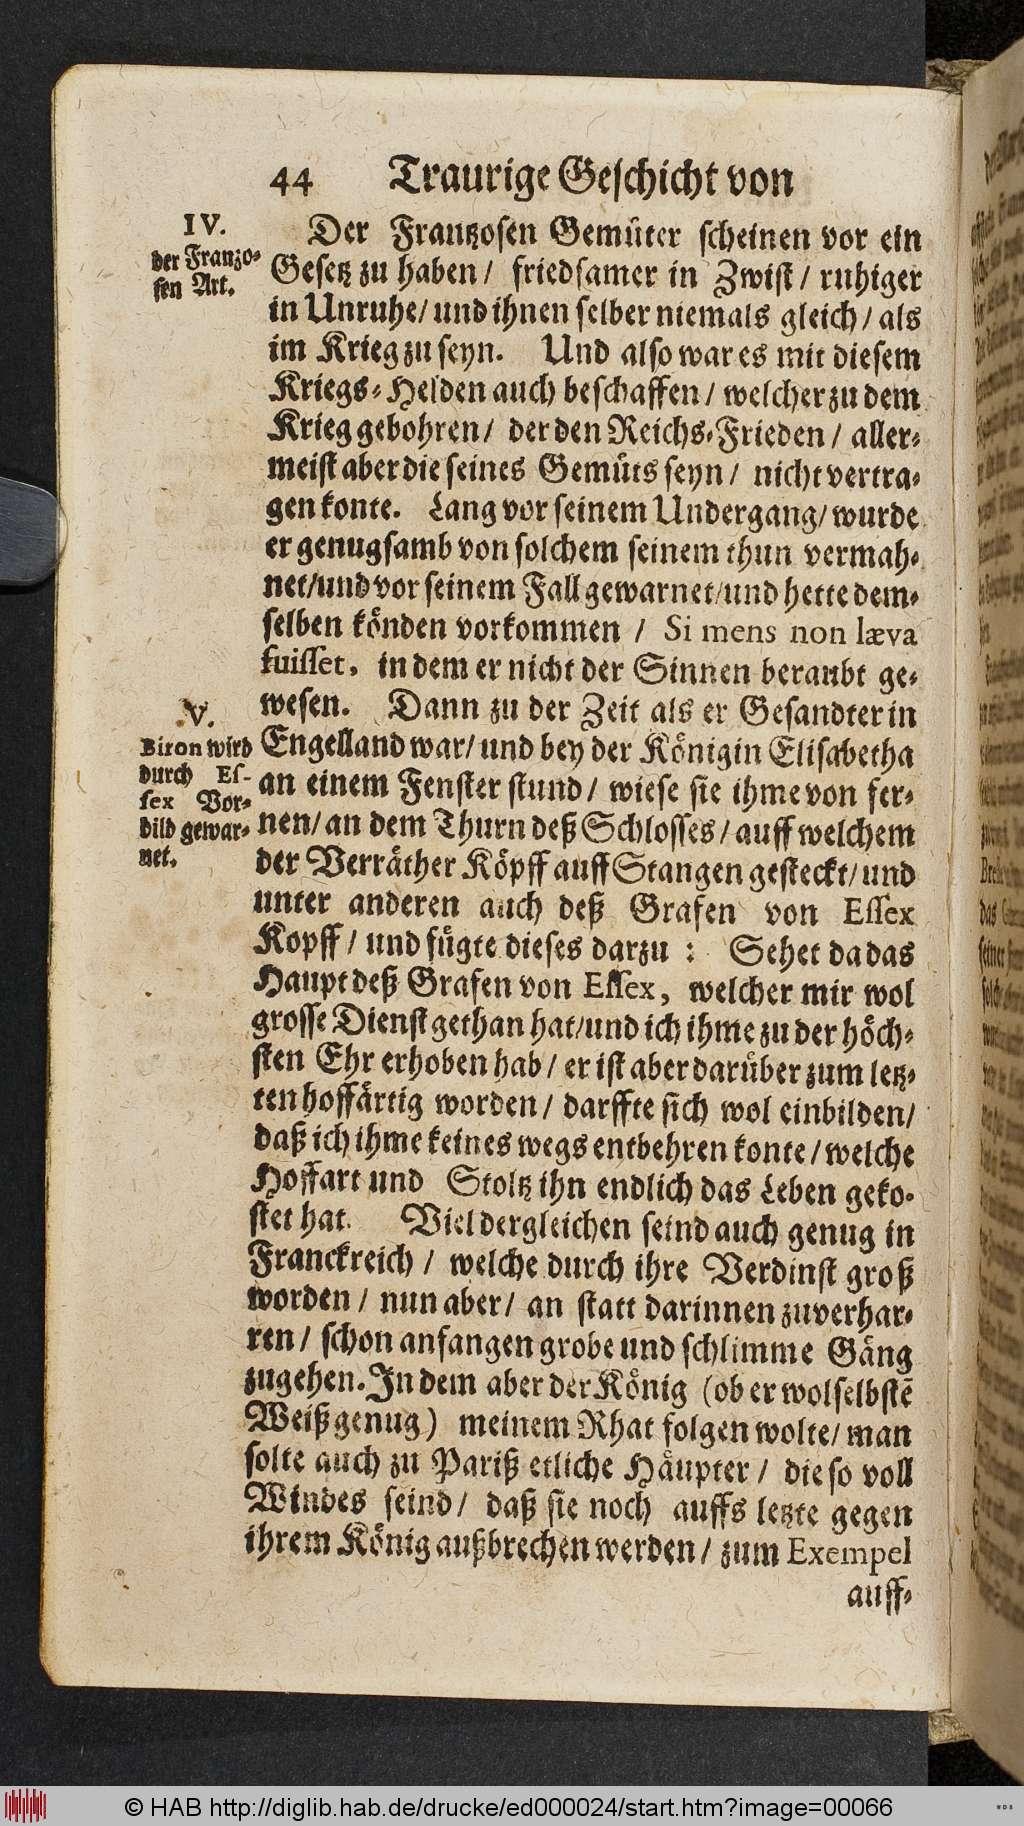 44 Traurige Geschicht von
IV.
der Franzo-
sen Art.
Der Frantzosen Gemüter scheinen vor ein
Gesetz zu haben / friedsamer in Zwist / ruhiger
in Unruhe / und ihnen selber niemals gleich / als
im Krieg zu seyn. Und also war es mit diesem
Kriegs-Helden auch beschaffen / welcher zu dem
Krieg gebohren / der den Reichs-Frieden / aller-
meist aber die seines Gemüts seyn / nicht vertra-
gen konte. Lang vor seinem Undergang / wurde
er genugsamb von solchem seinem thun vermah-
net / und vor seinem Fall gewarnet / und hette dem-
selben könden vorkommen / Si mens non læva
fuisset, in dem er nicht der Sinnen beraubt ge-
V.
Biron wird
durch Es-
sex Vor-
bild gewar-
net.
wesen. Dann zu der Zeit als er Gesandter in
Engelland war / und bey der Königin Elisabetha
an einem Fenster stund / wiese sie ihme von fer-
nen / an dem Thurn deß Schlosses / auff welchem
der Verräther Köpff auff Stangen gesteckt / und
unter anderen auch deß Grafen von Essex
Kopff / und fügte dieses darzu : Sehet da das
Haupt deß Grafen von Essex, welcher mir wol
grosse Dienst gethan hat / und ich ihme zu der höch-
sten Ehr erhoben hab / er ist aber darüber zum letz-
ten hoffärtig worden / darffte sich wol einbilden /
daß ich ihme keines wegs entbehren konte / welche
Hoffart und Stoltz ihn endlich das Leben geko-
stet hat. Viel dergleichen seind auch genug in
Franckreich / welche durch ihre Verdinst groß
worden / nun aber / an statt darinnen zuverhar-
ren / schon anfangen grobe und schlimme Gäng
zugehen. In dem aber der König (ob er wol selbstē
Weiß genug) meinem Rhat folgen wolte / man
solte auch zu Pariß etliche Häupter / die so voll
Windes seind / daß sie noch auffs letzte gegen
ihrem König außbrechen werden / zum Exempel
auff-
© HAB http://diglib.hab.de/drucke/ed000024/start.htm?image=00066